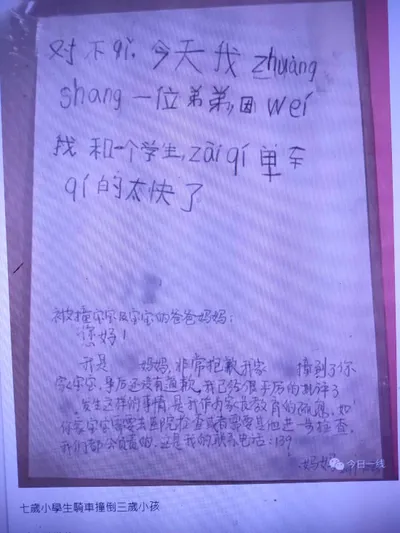 对不qǐ.今天我zhuàng
shang一位弟弟,因wéi
我和一个学生,zāi qí单车
qí的太快了
被撞宝宝及宝宝的爸爸妈妈:
您好!
我是 妈妈,非常抱歉我家 撞到了你
家宝宝,事后还没有道歉。我已经很严厉的批评了
发生这样的事情,是我作为家长教育的疏忽。如
你家宝宝需要去医院检查或者需要进一步检查,
我们都会负责的,这是我的联系电话:139
妈妈
今日一线
七歲小學生騎車撞倒三歲小孩